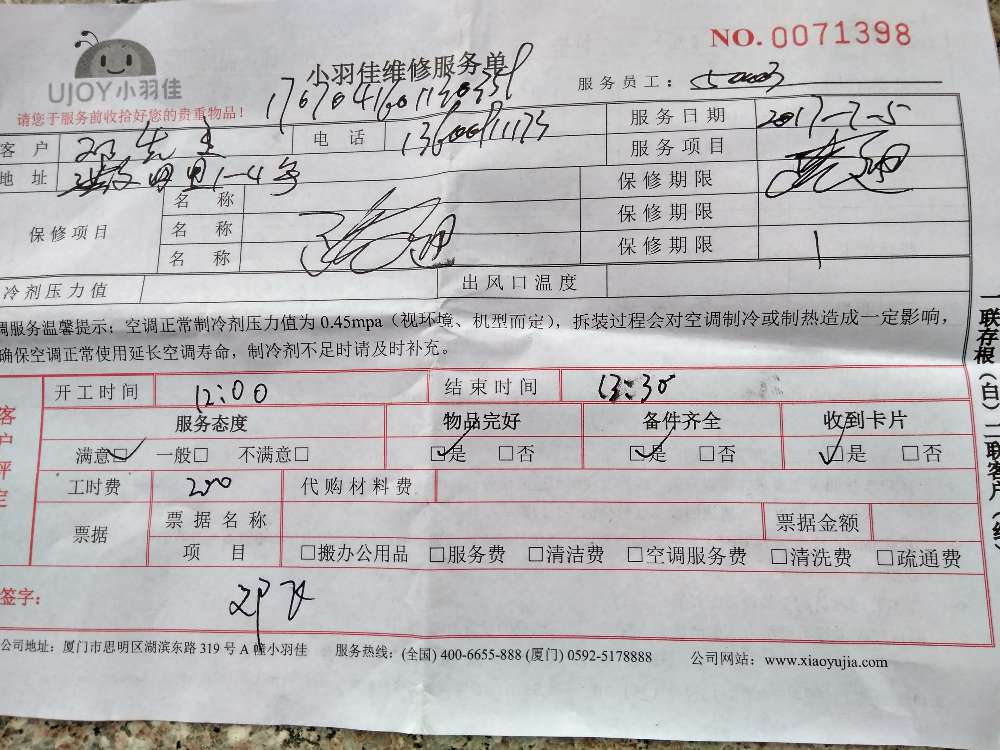 NO. 0071398
UJOY小羽佳
小羽佳维修服务单
服务员工：
请您于服务前收拾好您的贵重物品！
客 户 电 话 服务日期 2017-7-5
地 址 服务项目
保修项目 名 称 保修期限
名 称 保修期限
名 称 保修期限
冷剂压力值 出风口温度
调服务温馨提示：空调正常制冷剂压力值为 0.45mpa（视环境、机型而定），拆装过程会对空调制冷或制热造成一定影响，
确保空调正常使用延长空调寿命，制冷剂不足时请及时补充。
一联存根（白）二联客户（红）
客户评定
开工时间 12:00 结束时间 13:30
服务态度 物品完好 备件齐全 收到卡片
满意□ 一般□ 不满意□ □是 □否 □是 □否 □是 □否
工时费 200 代购材料费
票据 票据名称 票据金额
项 目 □搬办公用品 □服务费 □清洁费 □空调服务费 □清洗费 □疏通费
签字：
公司地址：厦门市思明区湖滨东路 319 号 A 幢小羽佳 服务热线：(全国) 400-6655-888 (厦门) 0592-5178888 公司网站：www.xiaoyujia.com